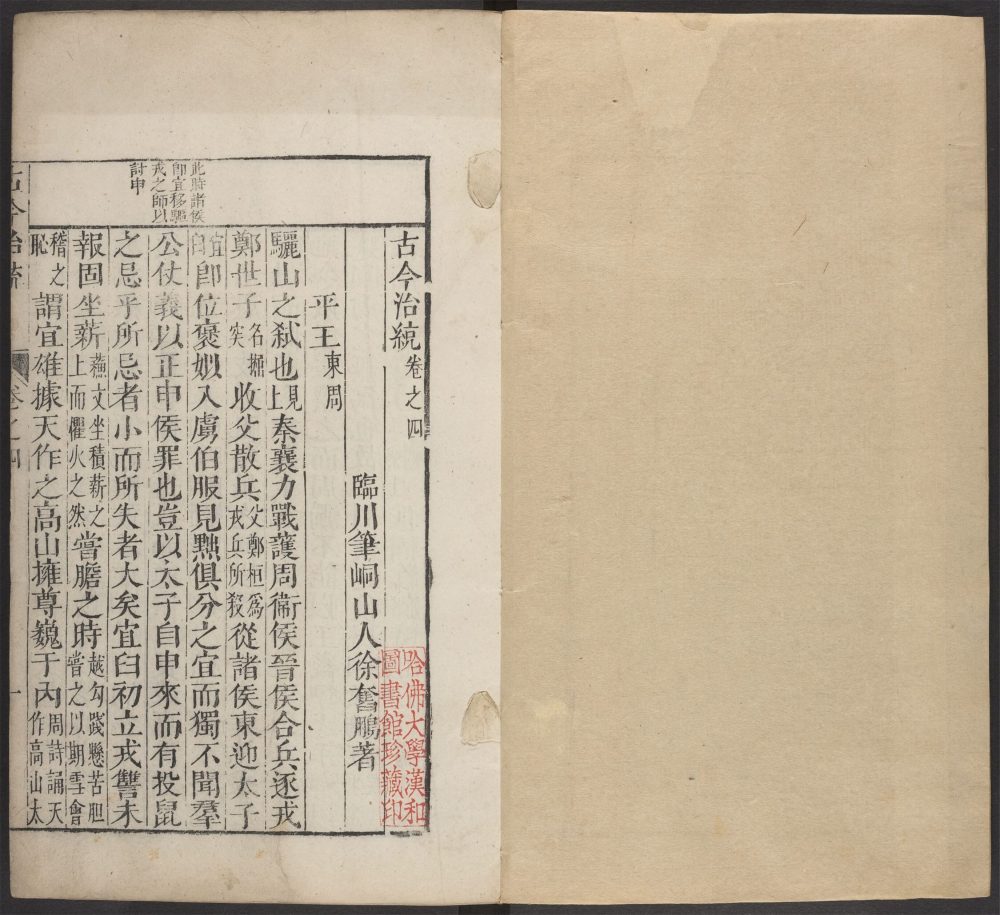 古今治統卷之四
臨川筆峒山人徐奮鵬著
平王東周
驪山之弑也見上秦襄力戰護周衞侯晉侯合兵逐戎
鄭世子名掘突收父散兵父鄭桓爲戎兵所殺從諸侯東迎太子
宜臼卽位褒姒入虜伯服見黜俱分之宜而獨不聞羣
公仗義以正申侯罪也豈以太子自申來而有投鼠
之忌乎所忌者小而所失者大矣宜臼初立戎讐未
報固坐薪蘓文坐積薪之上而懼火之然嘗膽之時越勾踐懸苦胆嘗之以期雪會
稽之恥謂宜雄據天作之高山擁尊巍于內周詩誦天作高山太
此時諸侯
卽宜移驅
戎之師以
討申
古今治統
卷之四
一
哈佛大學漢和
圖書館珍藏印